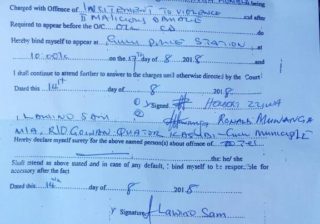 being
Charged with Offence of INCITEMENT TO VIOLENCE
& MALICIOUS DAMAGE and after
Required to appear before the O/C. CID do
Hereby bind myself to appear at GULU POLICE STATION
10.00 on the 17th day of 8 2018 and
I shall continue to attend further to answer to the charges until otherwise directed by the Court
Dated this 14th day of 8 2018
Signed
RONALD MUWANGA
I LAWINO SAM
MIA, R/O GOWAN QUATOR GULU MUNICIPALITY
Hereby declare myself surety for the above named person(s) about offence of
the: he/ she
Shall attend as above stated and in case of any default, I bind myself to be responsible for
accessory after the fact
Dated this 14th day of 8 2018
Signature Lawino Sam